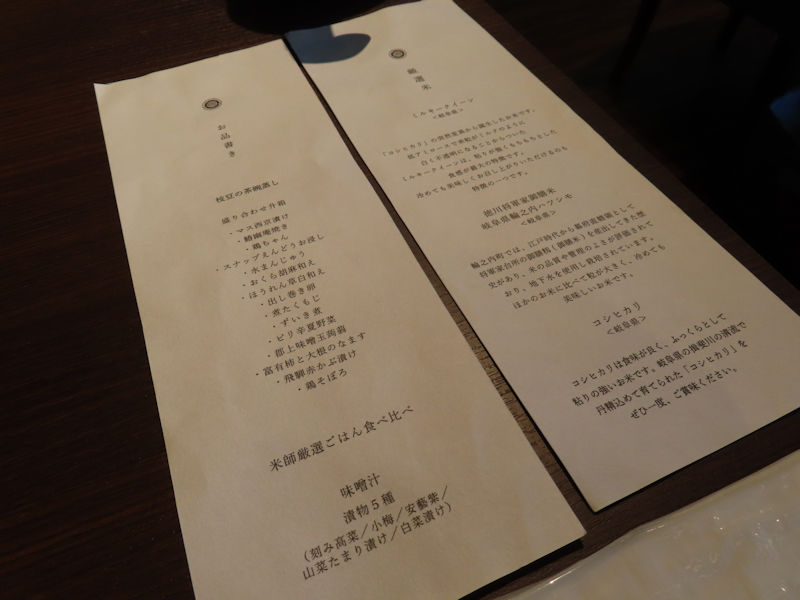 お品書き
枝豆の茶碗蒸し
盛り合わせ升箱
・マス西京漬け
・鰆幽庵焼き
・鶏ちゃん
・スナップえんどうお浸し
・水まんじゅう
・おくら胡麻和え
・ほうれん草白和え
・出し巻き卵
・煮たくもじ
・ずいき煮
・ピリ辛夏野菜
・郡上味噌玉蒟蒻
・富有柿と大根のなます
・飛騨赤かぶ漬け
・鶏そぼろ
米師厳選ごはん食べ比べ
味噌汁
漬物5種
（刻み高菜／小梅／安藝紫／
山菜たまり漬け／白菜漬け）
厳選米
ミルキークイーン
<岐阜県>
「コシヒカリ」の突然変異から誕生したお米です。
低アミロースで米粒がミルクのように
白く不透明になることからついた
ミルキークイーンは、粘りが強くもちもちとした
食感が最大の特徴です。
冷めても美味しくお召し上がりいただけるのも
特徴の一つです。
徳川将軍家御膳米
岐阜県輪之内ハツシモ
<岐阜県>
輪之内町では、江戸時代から幕府直轄領として
将軍家台所の御膳籾（御膳米）を産出してきた歴
史があり、米の品質や管理のよさが評価されて
おり、地下水を使用し栽培されています。
ほかのお米に比べて粒が大きく、冷めても
美味しいお米です。
コシヒカリ
<岐阜県>
コシヒカリは食味が良く、ふっくらとして
粘りの強いお米です。岐阜県の揖斐川の清流で
丹精込めて育てられた「コシヒカリ」を
ぜひ一度、ご賞味ください。